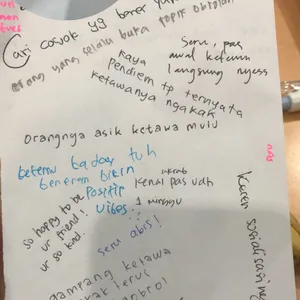 Cari cowok yg bener
orang yang selalu buka topik obrolan
Seru, pas
awal ketemu
langsung nyess
Kaya
Pendiem tp ternyata
ketawanya ngakak
orangnya asik ketawa mulu
ketemu
tuh
beneran bikin
Positif
Vibes!
akrab
kenal pas udh
1 minggu
so happy to be
ur friend!
ur so kind!
seru abis!
nas
Keren sosialisasinya
gampang ketawa